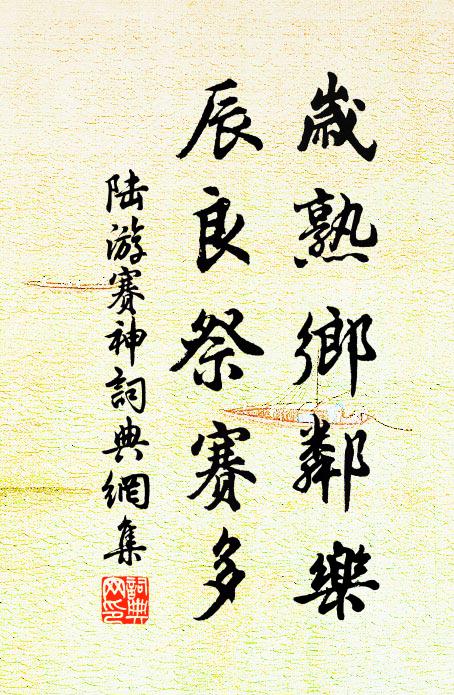 歲熟鄉鄰樂
辰良祭賽多
陸游賽神詞典網集
詞典網印